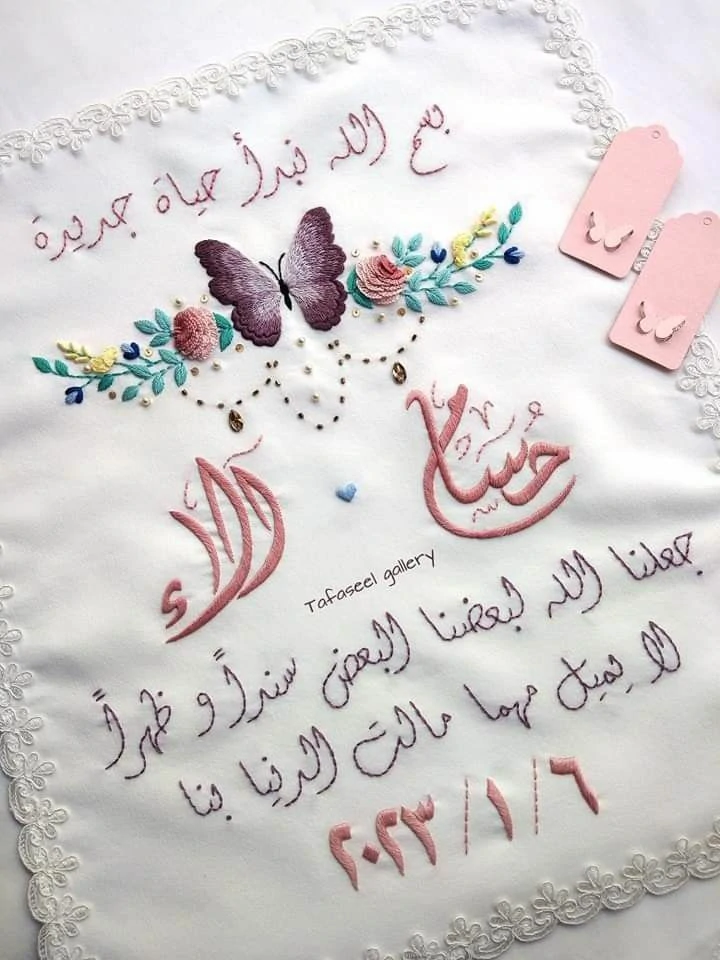 بسم الله نبدأ حياة جديدة
حسام
آلاء
Tafaseel gallery
جعلنا الله لبعضنا البعض سنداً و ظهراً
لا يميل مهما مالت الدنيا بنا
٢٠٢٣/١/٦